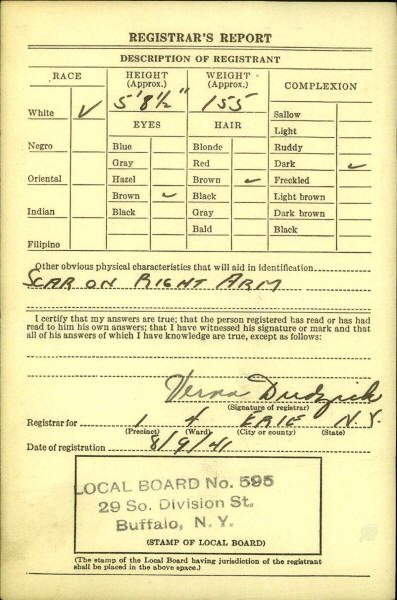 REGISTRAR'S REPORT
DESCRIPTION OF REGISTRANT
RACE
HEIGHT (Approx.)
WEIGHT (Approx.)
COMPLEXION
5'8½"
155
White ✓
EYES
HAIR
Sallow
Light
Negro
Blue
Blonde
Ruddy
Gray
Red
Dark ✓
Oriental
Hazel
Brown ✓
Freckled
Brown ✓
Black
Light brown
Indian
Black
Gray
Dark brown
Bald
Black
Filipino
Other obvious physical characteristics that will aid in identification
SCAR ON RIGHT ARM
I certify that my answers are true; that the person registered has read or has had
read to him his own answers; that I have witnessed his signature or mark and that
all of his answers of which I have knowledge are true, except as follows:
Verna Dudzick
(Signature of registrar)
Registrar for 1 4 ERIE N.Y.
(Precinct) (Ward) (City or county) (State)
Date of registration 8/9/41
LOCAL BOARD No. 595
29 So. Division St.
Buffalo, N. Y.
(STAMP OF LOCAL BOARD)
(The stamp of the Local Board having jurisdiction of the registrant
shall be placed in the above space.)